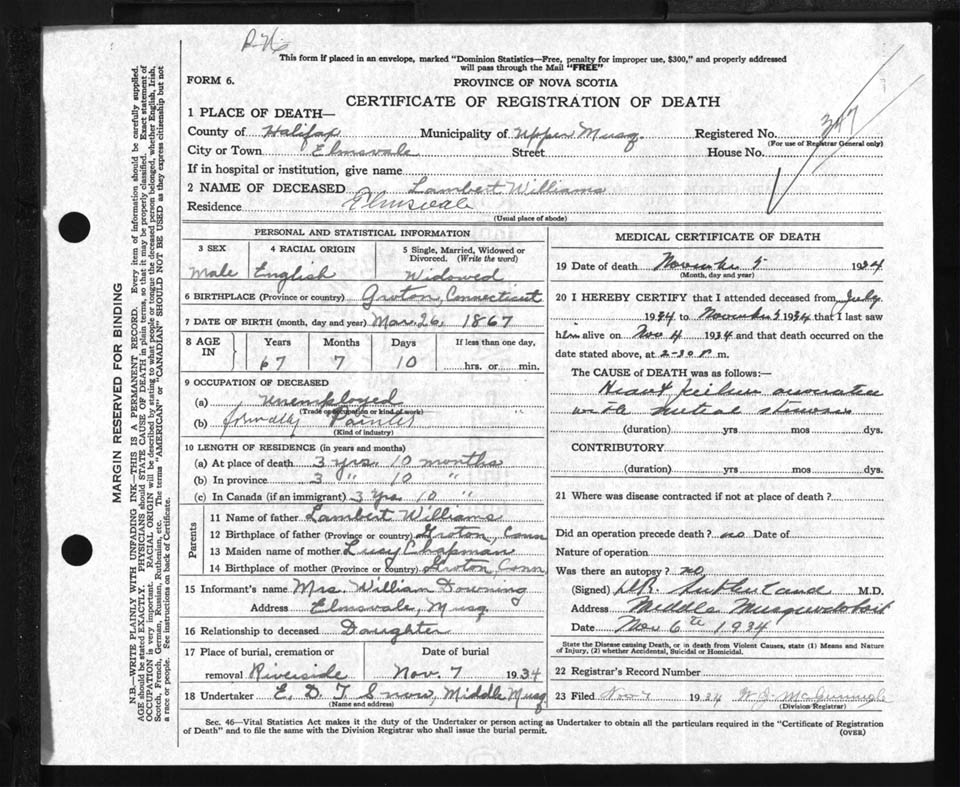 This form if placed in an envelope, marked "Dominion Statistics—Free, penalty for improper use, $300," and properly addressed
will pass through the Mail "FREE"
FORM 6.
PROVINCE OF NOVA SCOTIA
CERTIFICATE OF REGISTRATION OF DEATH
1 PLACE OF DEATH—
County of Halifax Municipality of Upper Musq. Registered No. 347
(For use of Registrar General only)
City or Town Elmsvale Street House No.
If in hospital or institution, give name
2 NAME OF DECEASED Lambert Williams
Residence Elmsvale
(Usual place of abode)
PERSONAL AND STATISTICAL INFORMATION
3 SEX 4 RACIAL ORIGIN 5 Single, Married, Widowed or
Divorced. (Write the word)
Male English Widowed
6 BIRTHPLACE (Province or country) Groton, Connecticut
7 DATE OF BIRTH (month, day and year) Mar. 26, 1867
8 AGE IN Years Months Days If less than one day,
67 7 10 hrs. or min.
9 OCCUPATION OF DECEASED
(a) Unemployed
(Trade or occupation or kind of work)
(b) formally Painter
(Kind of industry)
10 LENGTH OF RESIDENCE (in years and months)
(a) At place of death 3 yrs. 10 months
(b) In province 3 " 10 "
(c) In Canada (if an immigrant) 3 yrs. 10 "
Parents
11 Name of father Lambert Williams
12 Birthplace of father (Province or country) Groton, Conn
13 Maiden name of mother Lucy Chapman
14 Birthplace of mother (Province or country) Groton, Conn.
15 Informant's name Mrs. William Downing
Address Elmsvale, Musq.
16 Relationship to deceased Daughter
17 Place of burial, cremation or Date of burial
removal Riverside Nov. 7 1934
18 Undertaker E. D. T Snow, Middle Musq
(Name and address)
MEDICAL CERTIFICATE OF DEATH
19 Date of death November 5 1934
(Month, day and year)
20 I HEREBY CERTIFY that I attended deceased from July
1934 to November 5 1934 that I last saw
him alive on Nov 4 1934 and that death occurred on the
date stated above, at 2-30 P m.
The CAUSE of DEATH was as follows:—
Heart failure associated
with mitral stenosis
(duration) yrs mos dys.
CONTRIBUTORY
(duration) yrs mos dys.
21 Where was disease contracted if not at place of death?
Did an operation precede death? no Date of
Nature of operation
Was there an autopsy? no
(Signed) D.R. Sutherland M.D.
Address Middle Musquodoboit
Date Nov 6th 1934
State the Disease causing Death, or in death from Violent Causes, state (1) Means and Nature
of Injury, (2) whether Accidental, Suicidal or Homicidal.
22 Registrar's Record Number
23 Filed Nov 7 1934
(Division Registrar)
Sec. 46—Vital Statistics Act makes it the duty of the Undertaker or person acting as Undertaker to obtain all the particulars required in the "Certificate of Registration
of Death" and to file the same with the Division Registrar who shall issue the burial permit. (OVER)
MARGIN RESERVED FOR BINDING
N.B.—WRITE PLAINLY WITH UNFADING INK—THIS IS A PERMANENT RECORD. Every item of information should be carefully supplied.
AGE should be stated EXACTLY. PHYSICIANS should STATE CAUSE OF DEATH in plain terms, so that it may be properly classified. Exact statement of
OCCUPATION is very important. RACIAL ORIGIN will be described by stating to what people or tongue the deceased person belonged, whether English, Irish,
Scotch, French, German, Russian, Ruthenian, etc. The terms "AMERICAN" or "CANADIAN" SHOULD NOT BE USED as they express citizenship but not
a race or people. See instructions on back of Certificate.